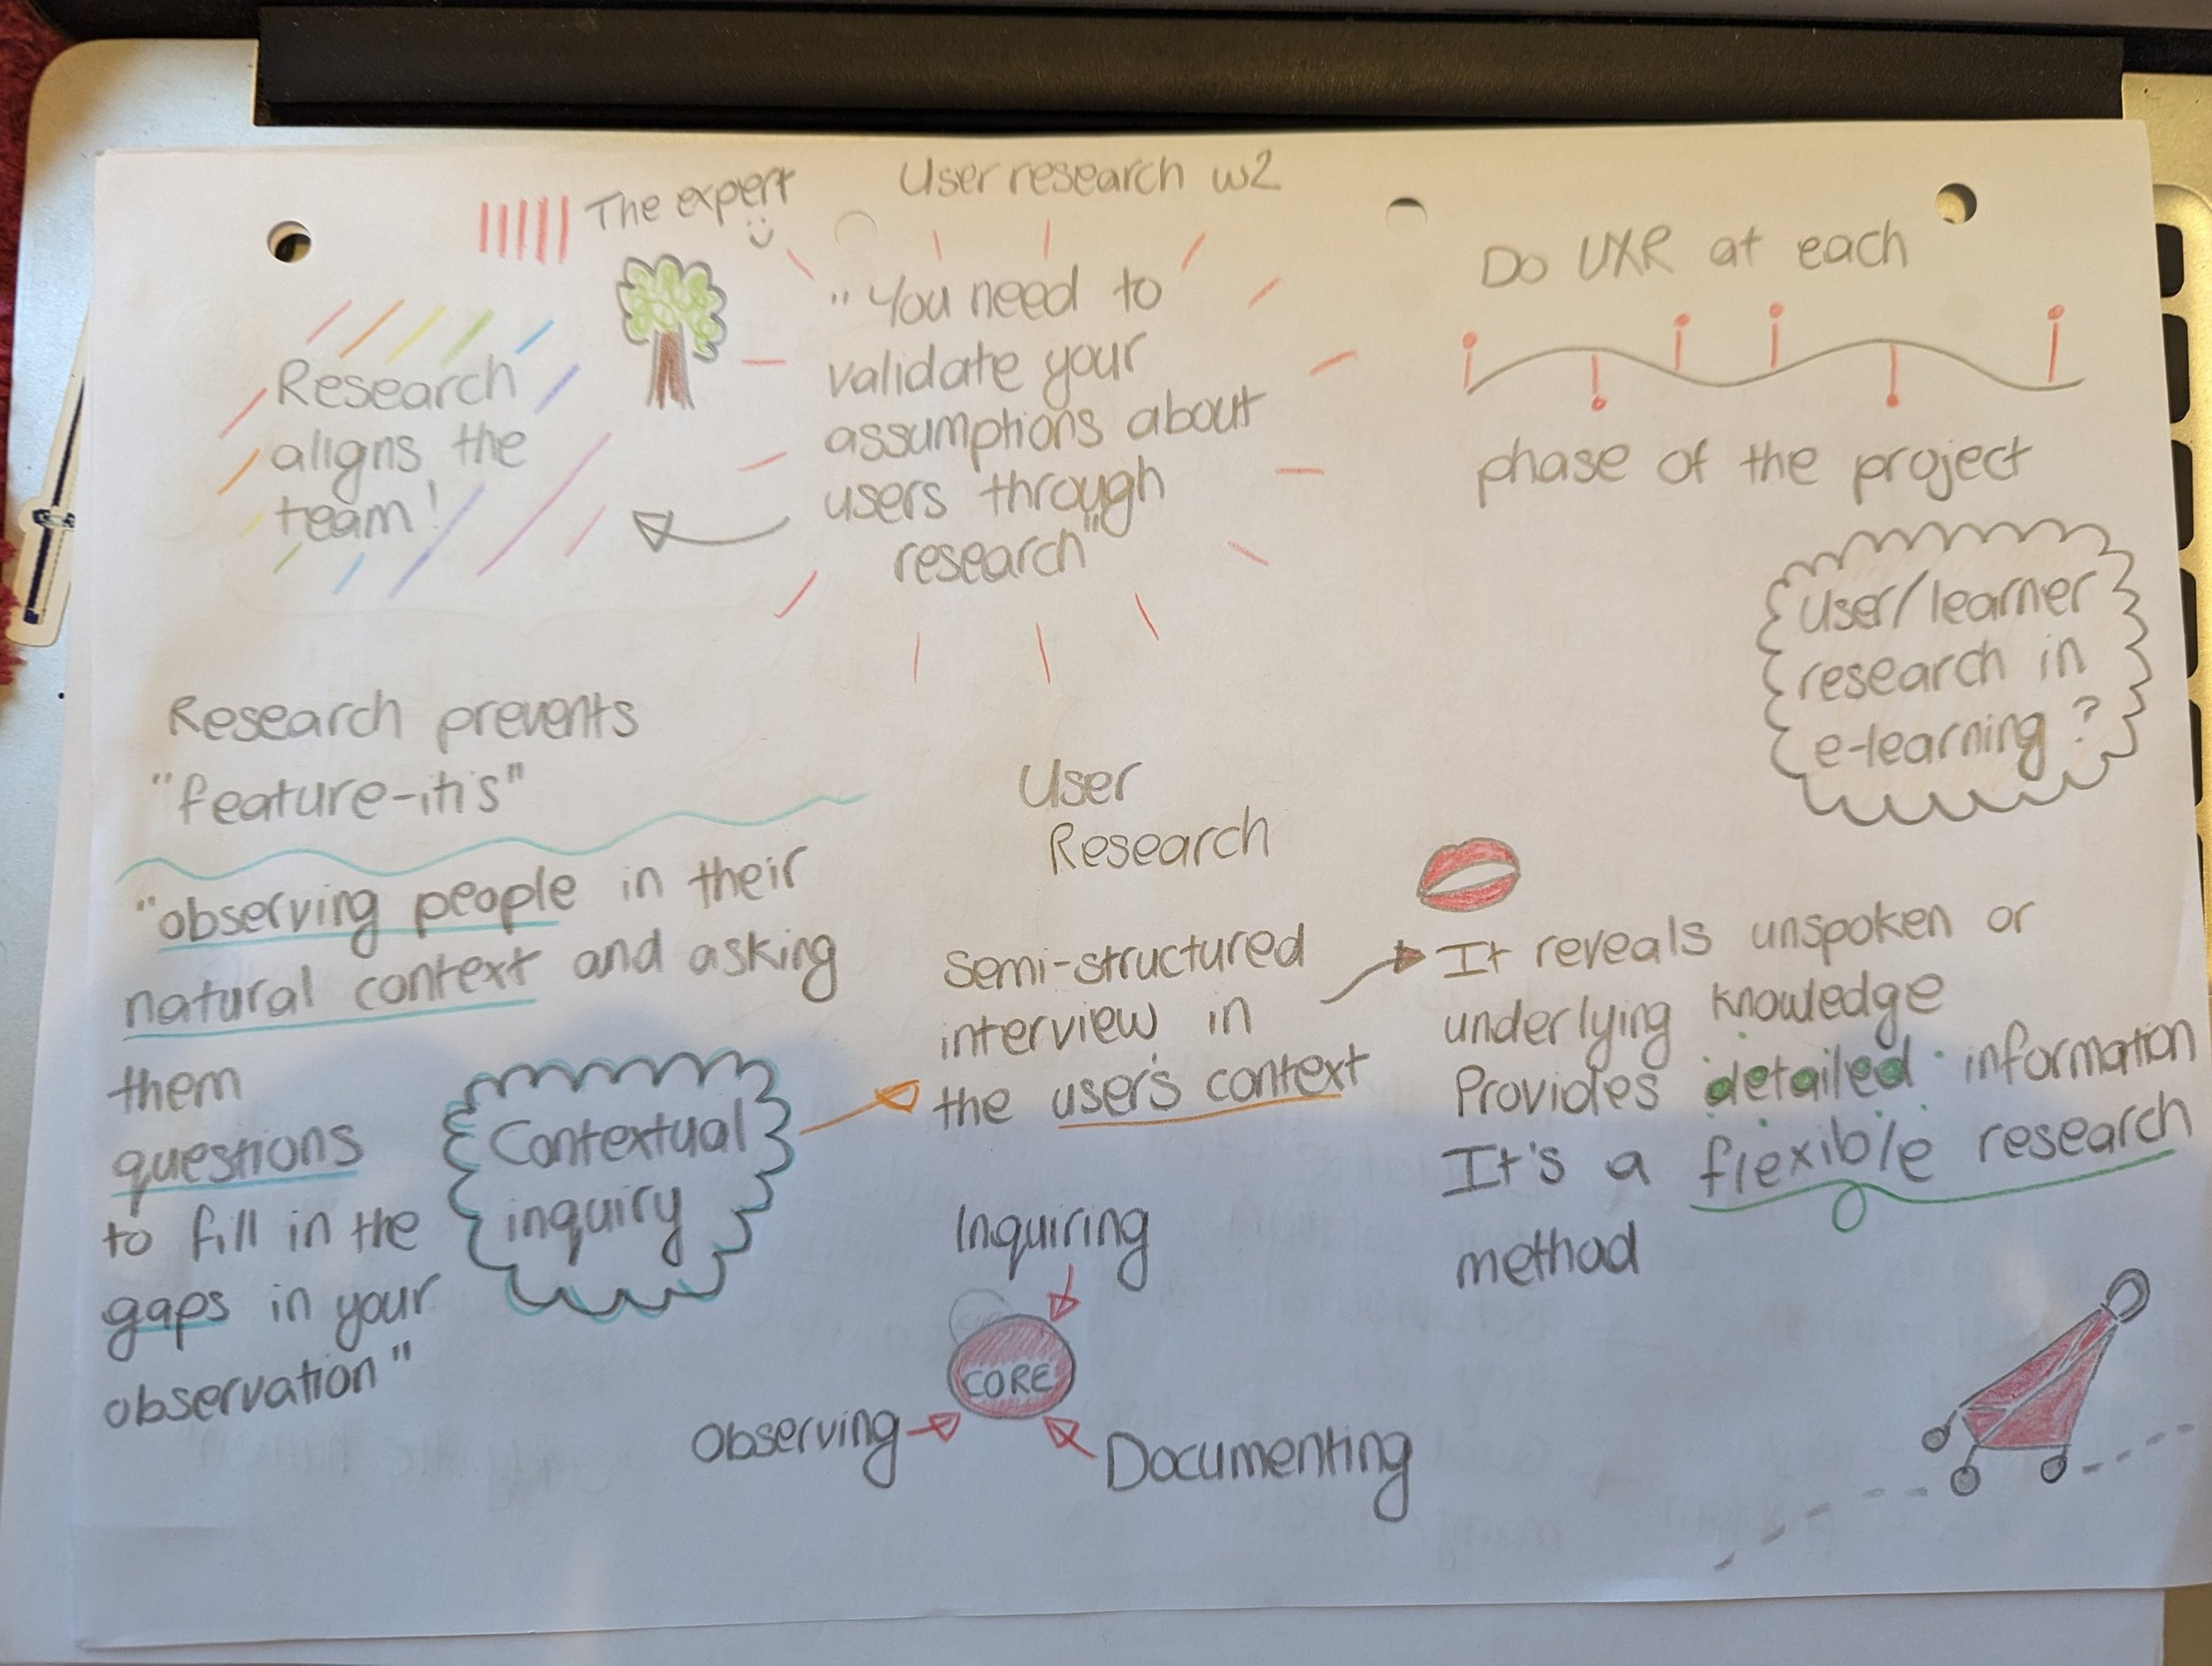 User research w2
The expert
"You need to
validate your
assumptions about
users through
research"
Research
aligns the
team!
Do UXR at each
phase of the project
User/learner
research in
e-learning?
Research prevents
"feature-itis"
"observing people in their
natural context and asking
them
questions
to fill in the
gaps in your
observation"
Contextual
inquiry
User
Research
Semi-structured
interview in
the user's context
It reveals unspoken or
underlying knowledge
Provides detailed information
It's a flexible research
method
Inquiring
CORE
Observing
Documenting